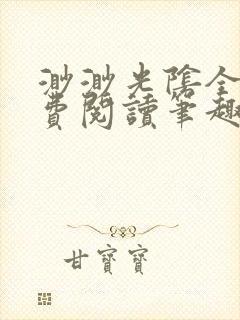 渺渺光陰全
費閱讀筆趣
甘寶寶